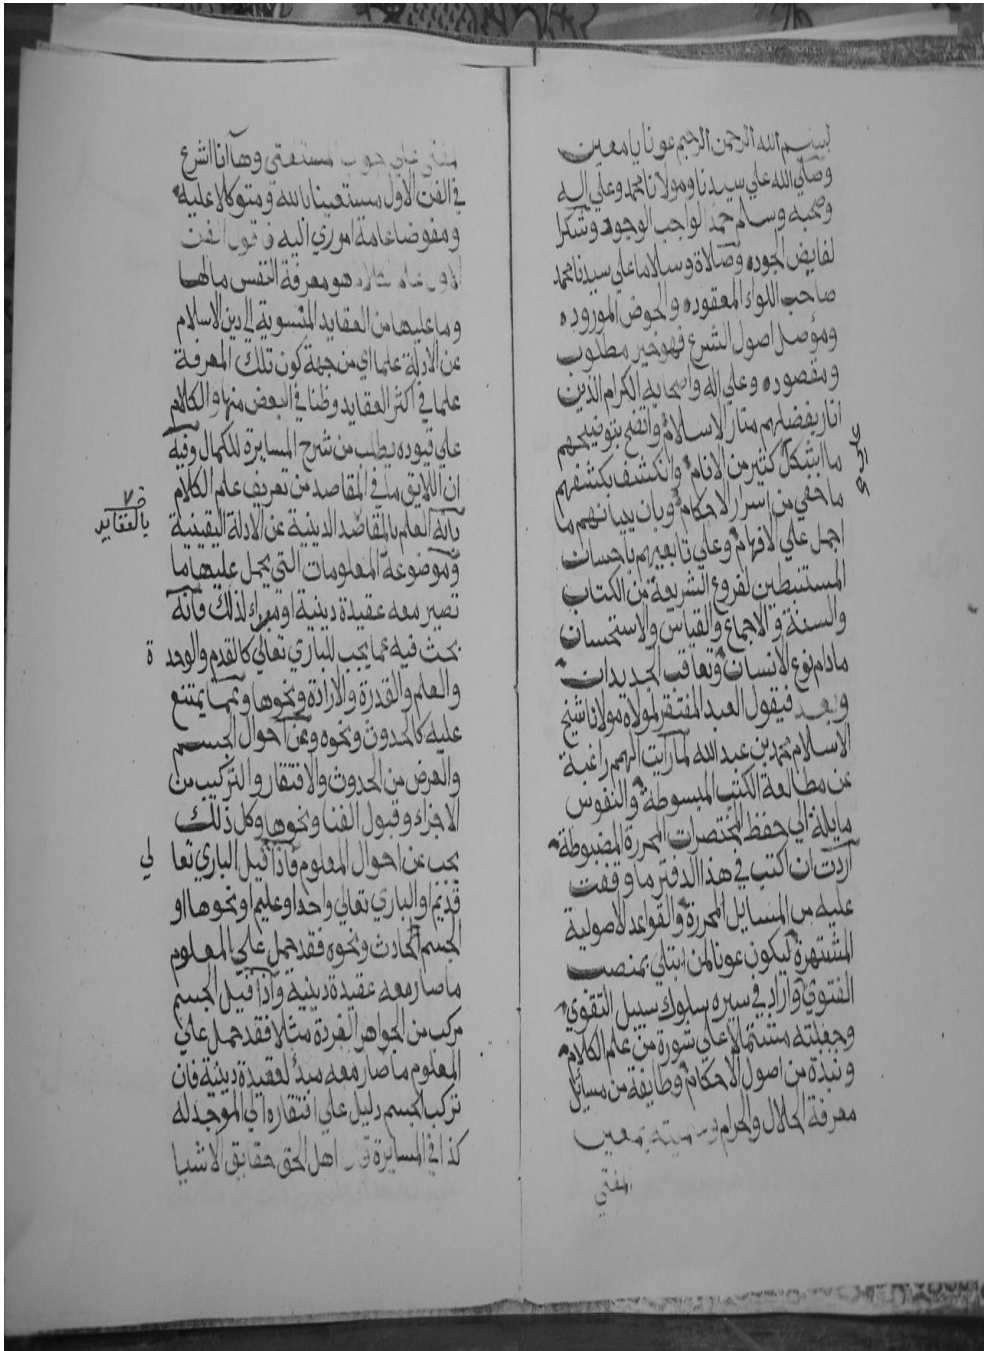 بسم الله الرحمن الرحيم عونا يا معين
وصلي الله علي سيدنا ومولانا محمد وعلي اله
وصحبه وسلم حمدا لواجب الوجود وشكرا
لفايض الجوده وصلاة وسلاما علي سيدنا محمد
صاحب اللواء المعقوده والحوض الموروده
وموصل اصول الشرع فهو خير مطلوب
ومقصوده وعلي اله واصحابه الكرام الذين
انار بفضلهم منار الاسلام واتضح بتوضيحهم
ما اشكل كثير من الانام وانكشف بكشفهم
ما خفي من اسرار الاحكام وبان ببيانهم ما
اجمل علي الافهام وعلي تابعيهم باحسان
المستنبطين لفروع الشريعة من الكتاب
والسنة والاجماع والقياس والاستحسان
مادام نوع الانسان وتعاقب الجديدان
وبعد فيقول العبد المفتقر لمولاه مولانا شيخ
الاسلام محمد بن عبد الله لما رايت الهمم راغبة
عن مطالعة الكتب المبسوطة والنفوس
مايلة الي حفظ المختصرات المحررة المضبوطة
اردت ان اكتب في هذا الدفتر ما وقفت
عليه من المسايل المحررة والقواعد الاصولية
المشتهرة ليكون عونا لمن ابتلي بمنصب
الفتوي واراد في سيره سلوك سبيل التقوي
وجعلته مشتملا علي شورة من علم الكلام
ونبذة من اصول الاحكام وطايفة من مسايل
معرفة الحلال والحرام وسميته بمعين
المفتي
المفتي علي جواب المستفتي وها انا اشرع
في الفن الاول مستعينا بالله ومتوكلا عليه
ومفوضا عامة اموري اليه فاقول الفن
الاول علم الكلام هو معرفة النفس مالها
وما عليها من العقايد المنسوبة الي دين الاسلام
عن الادلة علما اي من جهة كون تلك المعرفة
علما في اكثر العقايد وظنا في البعض منها والكلام
علي قيوده يطلب من شرح المسايرة للكمال وفيه
ان اللايق ما في المقاصد من تعريف علم الكلام
بانه العلم بالمقاصد الدينية عن الادلة اليقينية
خ
بالعقايد
وموضوعه المعلومات التي يحمل عليها ما
تصير معه عقيدة دينية او مبدا لذلك فانه
بحث فيه عما يجب للباري تعالي كالقدم والوحد ة
والعلم والقدرة والارادة ونحوها وعما يمتنع
عليه كالحدوث ونحوه وعن احوال الجسم
والعرض من الحدوث والافتقار والتركيب من
الاجزاء وقبول الفنا ونحوها وكل ذلك
بحث عن احوال المعلوم فاذا قيل الباري تعا لي
قديم او الباري تعالي واحد او عليم او نحوها او
الجسم الحادث ونحوه فقد حمل علي المعلوم
ما صار معه عقيدة دينية واذا قيل الجسم
مركب من الجواهر الفردة مثلا فقد حمل علي
المعلوم ما صار معه مبدأ لعقيدة دينية فان
تركب الجسم دليل علي افتقاره الي الموجد له
كذا في المسايرة قال اهل الحق حقايق الاشيا